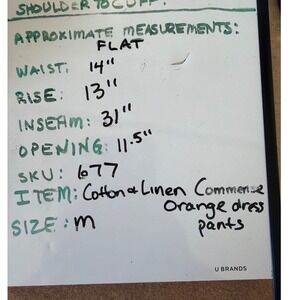 SHOULDER TO CUFF:
APPROXIMATE MEASUREMENTS:
FLAT
WAIST: 14"
RISE: 13"
INSEAM: 31"
OPENING: 11.5"
SKU: 677
ITEM: Cotton & Linen Commense
Orange dress
pants
SIZE: M
U BRANDS